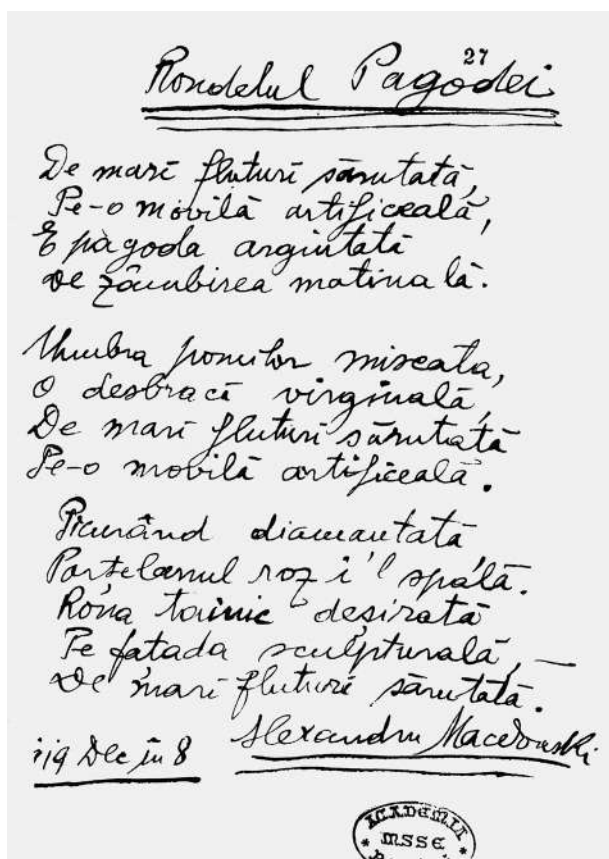 27
Rondelul Pagodei
De mari fluturi sărutată,
Pe-o movilă artificeală,
E pagoda argintată
De zâmbirea matinală.
Umbra pomilor miscata,
O desbracă virginală,
De mari fluturi sărutată
Pe-o movilă artificeală.
Picurând diamantată
Porțelanul roz i'l spală.
Roua tainic deșirată
Pe fațada sculpturală, —
De mari fluturi sărutată.
Alexandru Macedonski
19 Dec în 8
ACADEMIA
MSSE